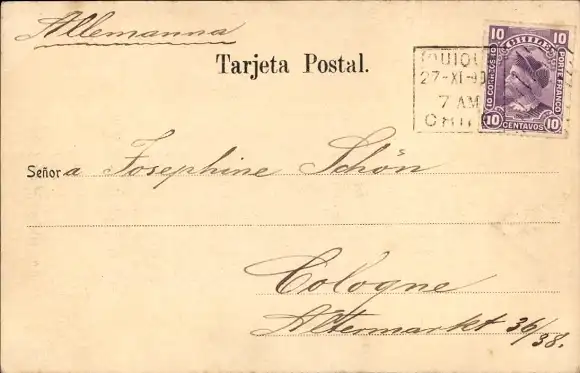 Allemanna
Tarjeta Postal.
IQUIQU
27-XI-
7 AM
CHI
10 CHILE 10
10 CORREOS 10
PORTE FRANCO
10 CENTAVOS 10
Señora Josephine Schön
Cologne
Altermarkt 36/38.